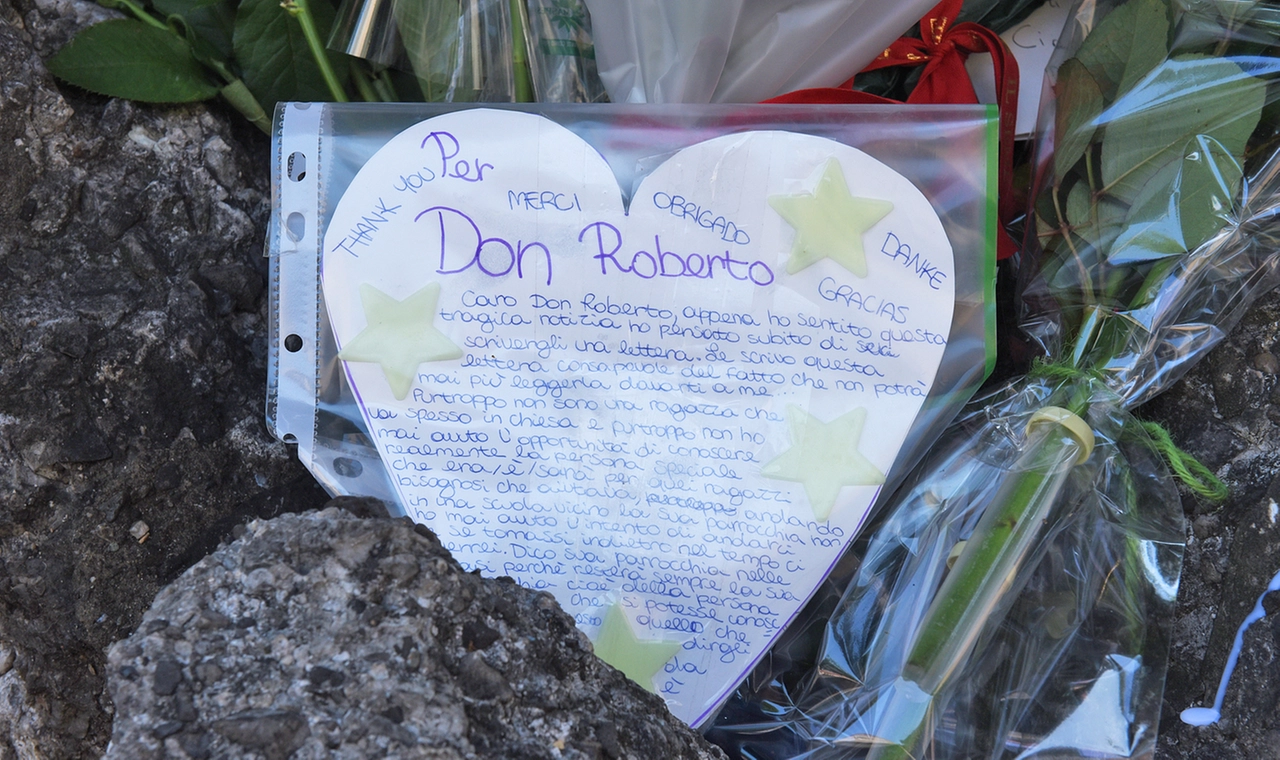 Per
THANK YOU
MERCI
OBRIGADO
DANKE
GRACIAS
Don Roberto
Caro Don Roberto, appena ho sentito questa
tragica notizia ho pensato subito di
scrivergli una lettera. Le scrivo questa
lettera consapevole del fatto che non potrà
mai più leggerla davanti a me...
Purtroppo non sono una ragazza che
va spesso in chiesa e purtroppo non ho
mai avuto l'opportunità di conoscere
realmente la persona speciale
che era/è/sarà per quei ragazzi
bisognosi che aiutava andando
in una scuola vicino la sua parrocchia non
ho mai avuto l'intento di andarci
se tornassi indietro nel tempo ci
andrei. Dico sua parrocchia nelle
perché resterà sempre la sua
della persona
che si potesse conosc
quello che
dirgli
da
è